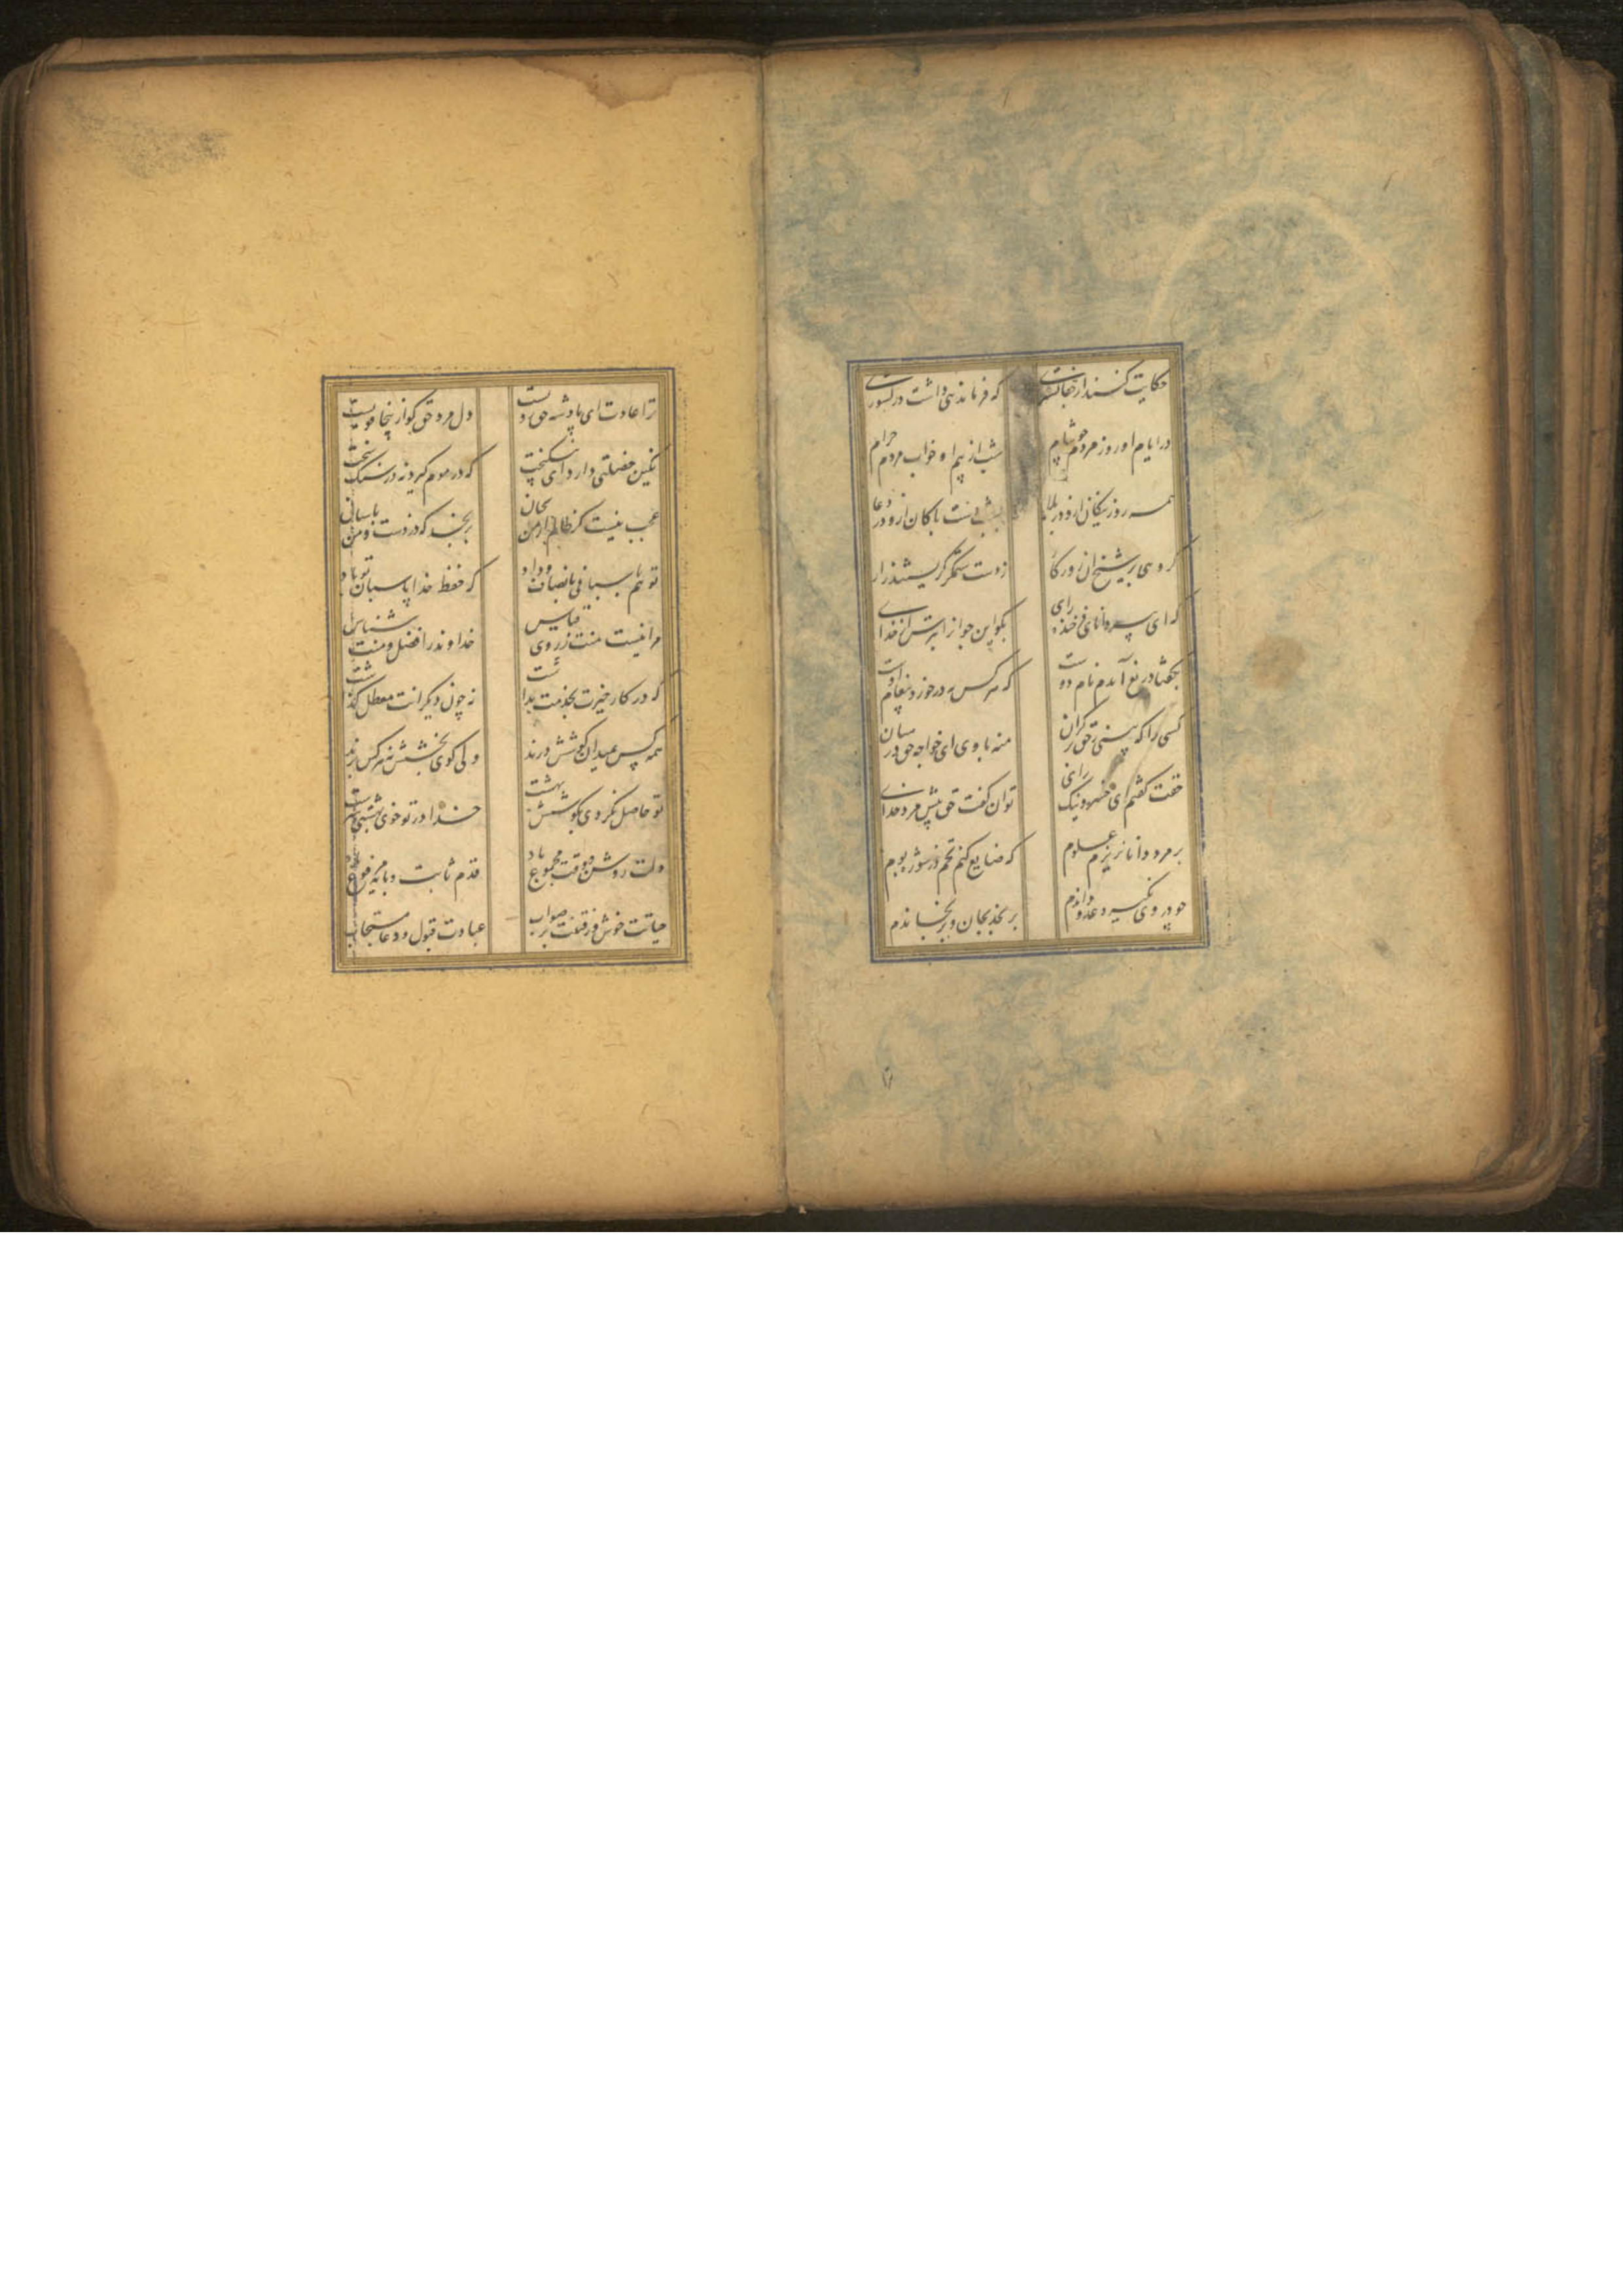 حکایت کنند از جفاگستری که فرماندهی داشت در کشوری
در ایام او روز مردم چو شام شب از بیم او خواب مردم حرام
همه روز نیکان ازو در بلا بشب دست پاکان ازو در دعا
گروهی بر شیخ آن روزگار ز دست ستمگر گریستند زار
که ای پیر دانای فرخنده رای بگو این جوانرا بترس از خدای
بگفتا دریغ آیدم نام دوست که هر کس نه در خورد پیغام اوست
کسی را که بینی ز حق بر کران منه با وی ای خواجه حق در میان
حقت گفتم ای خسرو نیک رای توان گفت حق پیش مرد خدای
بر مرد دانا نریزم علوم که ضایع کنم تخم در شوره بوم
چو در وی نگیرد عدو داندم برنجد بجان و برنجاندم
ترا عادت ای پادشه حق رویست دل مرد حق گو ازینجا قویست
نگین خصلتی دارد ای نیکبخت که در موم گیرد نه در سنگ سخت
عجب نیست گر ظالم از من بجان برنجد که دزدست و من پاسبان
تو هم پاسبانی بانصاف و داد که حفظ خدا پاسبان تو باد
ترا نیست منت ز روی قیاس خداوند را فضل و منت شناس
که در کار خیرت بخدمت بداشت نه چون دیگرانت معطل گذاشت
همه کس بمیدان کوشش درند ولی گوی بخشش نه هر کس برند
تو حاصل نکردی بکوشش بهشت خدا در تو خوی بهشتی سرشت
دلت روشن و وقت مجموع باد قدم ثابت و پایه مرفوع باد
حیاتت خوش و رفتنت بر صواب عبادت قبول و دعا مستجاب